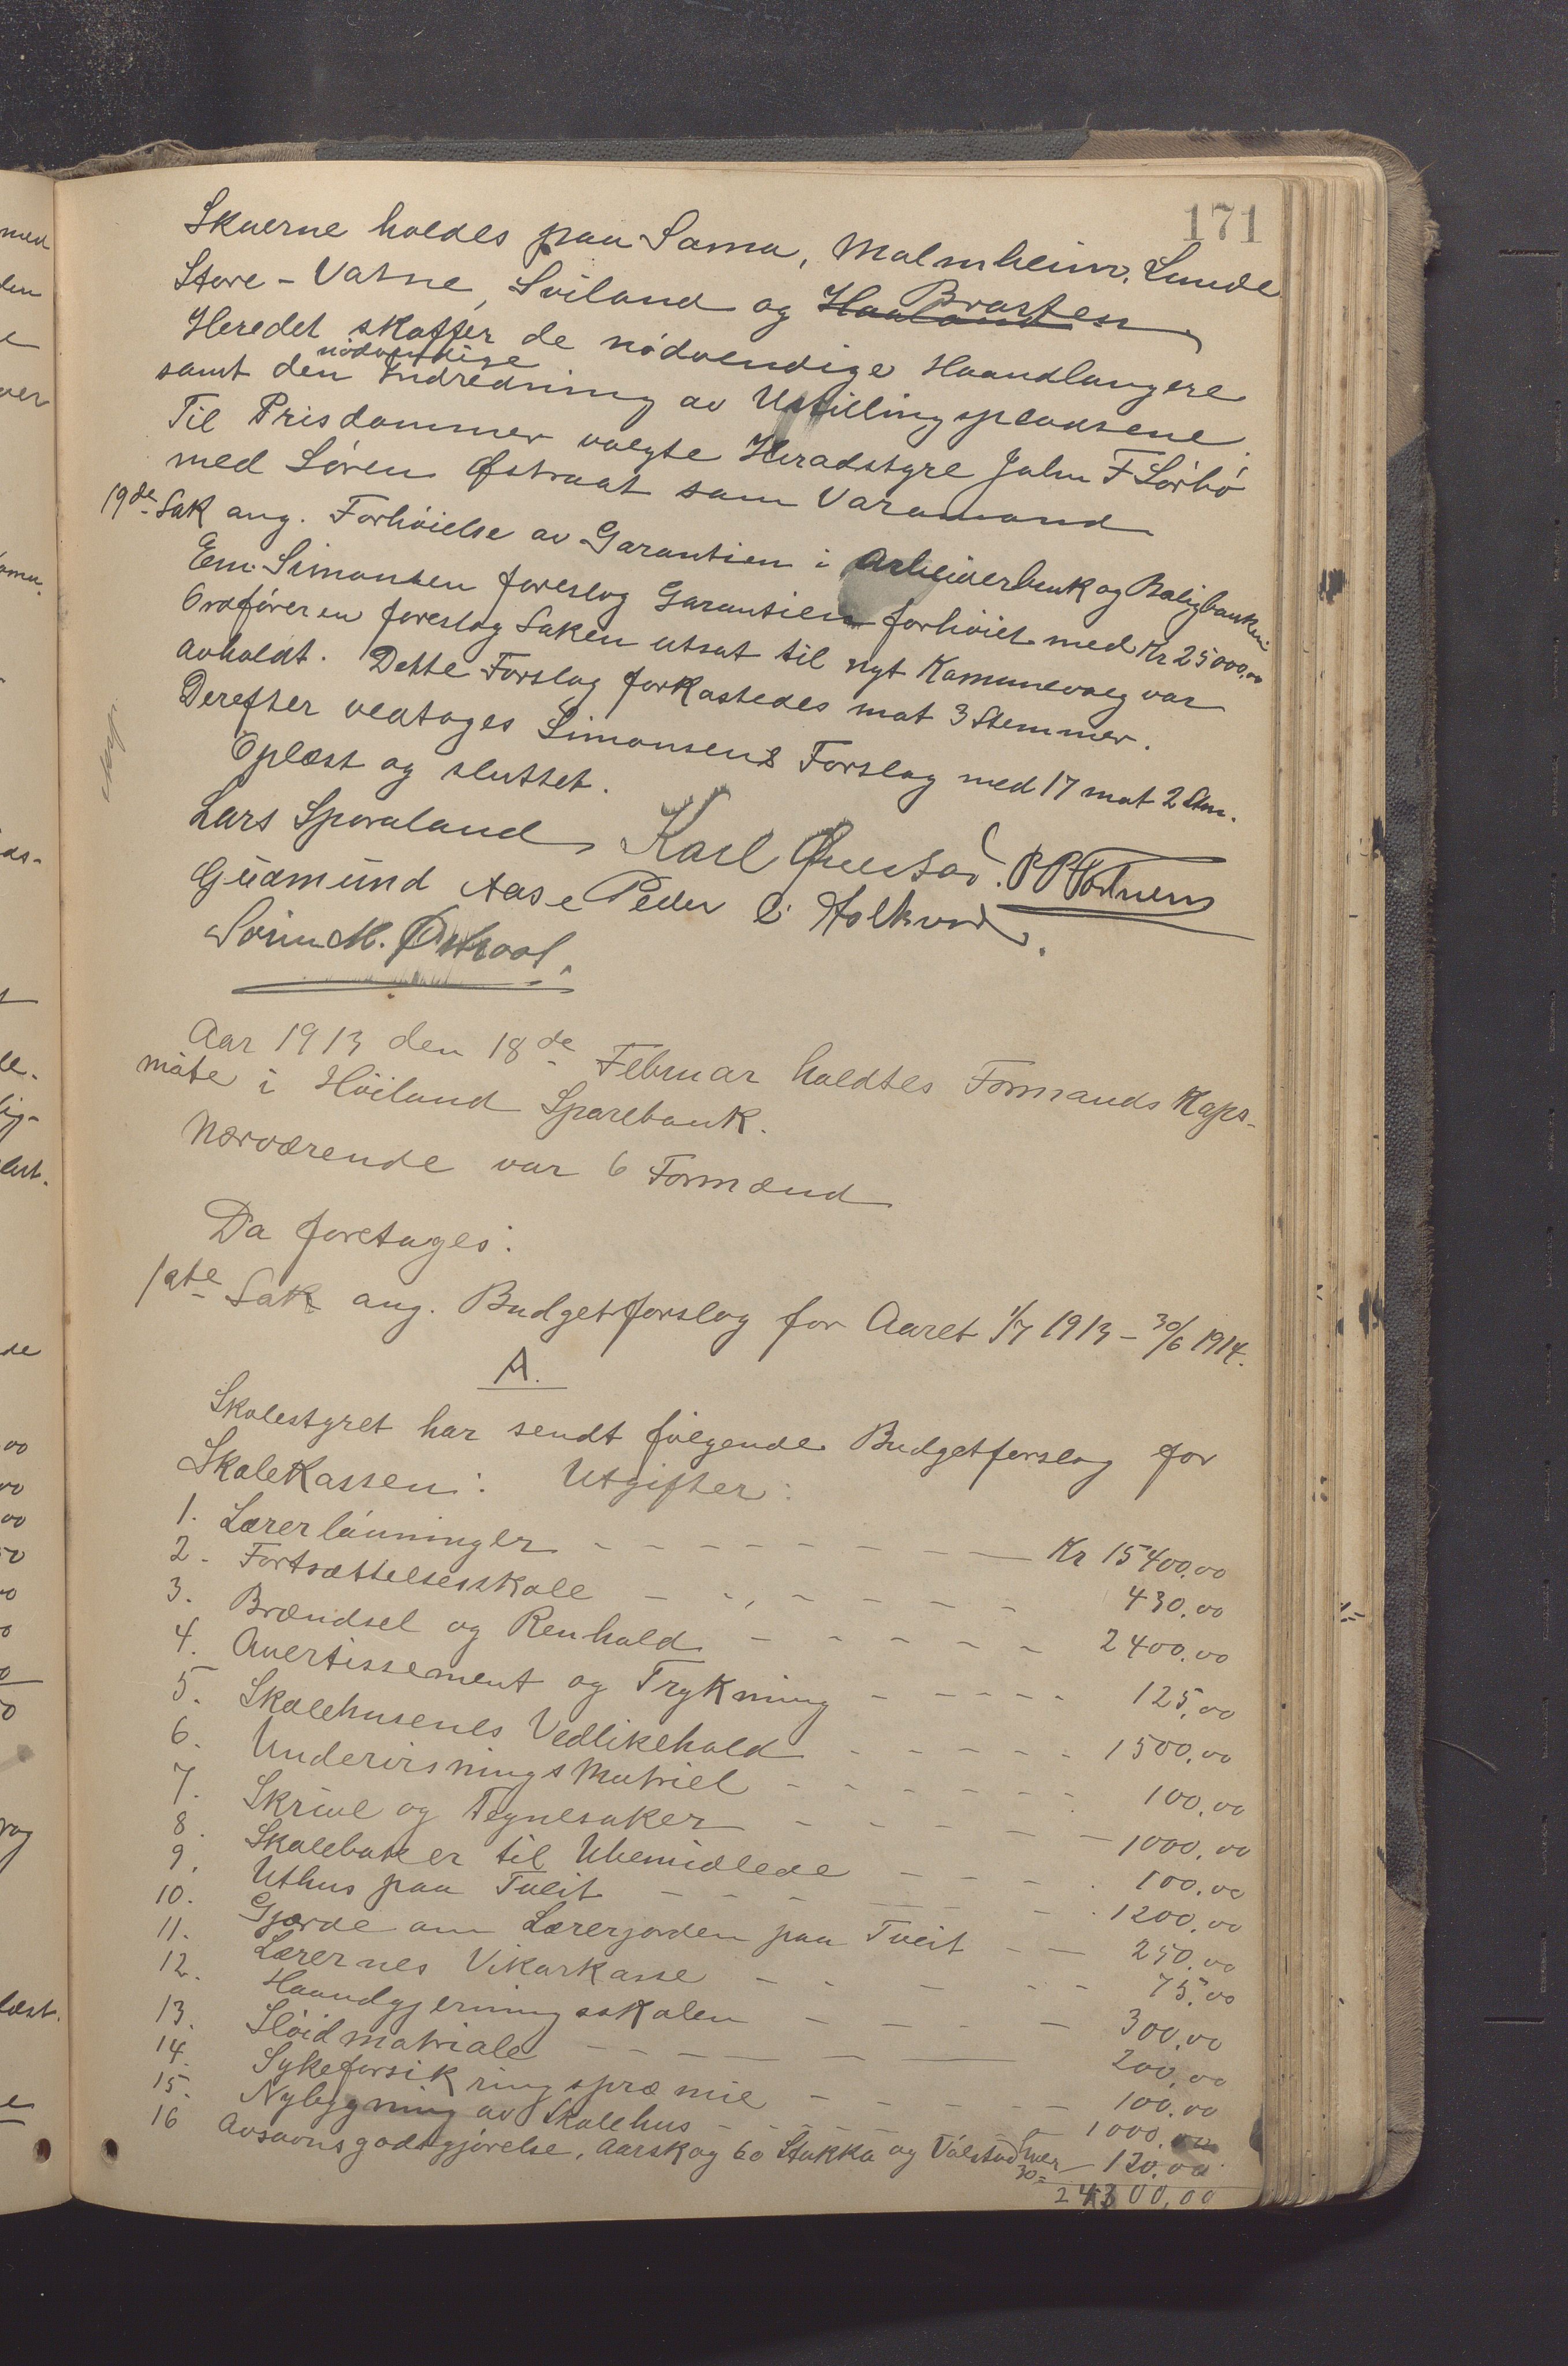 171
Skuerne holdes paa Soma, Malmheim, Lunde
Store-Vatne, Sviland og Haaland Brasten
Heredet skaffer de nödvendige Haandlangere
samt den nödvendige Indredning av Utstillingspladsene.
Til Prisdommer valgte Heradstyre John F Sörbö
med Sören Østraat som Varamand
19de Sak ang. Forhöielse av Garantien i Arbeiderbruk og Boligbanken
Em. Simonsen foreslog Garantien forhöiet med Kr 25000,00
Ordföreren foreslog Saken utsat til nyt Komunevalg var
avholdt. Dette Forslag forkastedes mot 3 Stemmer.
Derefter vedtages Simonsens Forslag med 17 mot 2 Stem.
Oplæst og sluttet.
Lars Sporaland Karl
Gudmund Aase Peder
Sören M. Østraat.
Aar 1913 den 18de Februar holdtes Formands Kaps-
möte i Höiland Sparebank.
Nærværende var 6 Formænd
Da foretages:
1ste Sak ang. Budgetforslag for Aaret 1/7 1913 - 30/6 1914.
A.
Skolestyret har sendt fölgende Budgetforslag for
Skolekassen: Utgifter:
1. Lærerlönninger Kr 15400,00
2. Fortsættelsesskole 430,00
3. Brændsel og Renhold 2400,00
4. Avertissement og Trykning 125,00
5. Skolehusenes Vedlikehold 1500,00
6. UndervisningsMatriel 100,00
7. Skrive og Tegnesaker 1000,00
8. Skoleböker til Ubemidlede 100,00
9. Uthus paa Tveit 1200,00
10. Gjærde om Lærerjorden paa Tveit 250,00
11. Lærernes Vikarkasse 75,00
12. Haandgjerningsskolen 300,00
13. Slöidmatriale 200,00
14. Sykeforsikringspræmie 100,00
15. Nybygning av Skolehus 1000,00
16 Avsavnsgodtgjörelse, Aarskog 60 Stokka og Tölstad hver 30= 120,00
24300,00